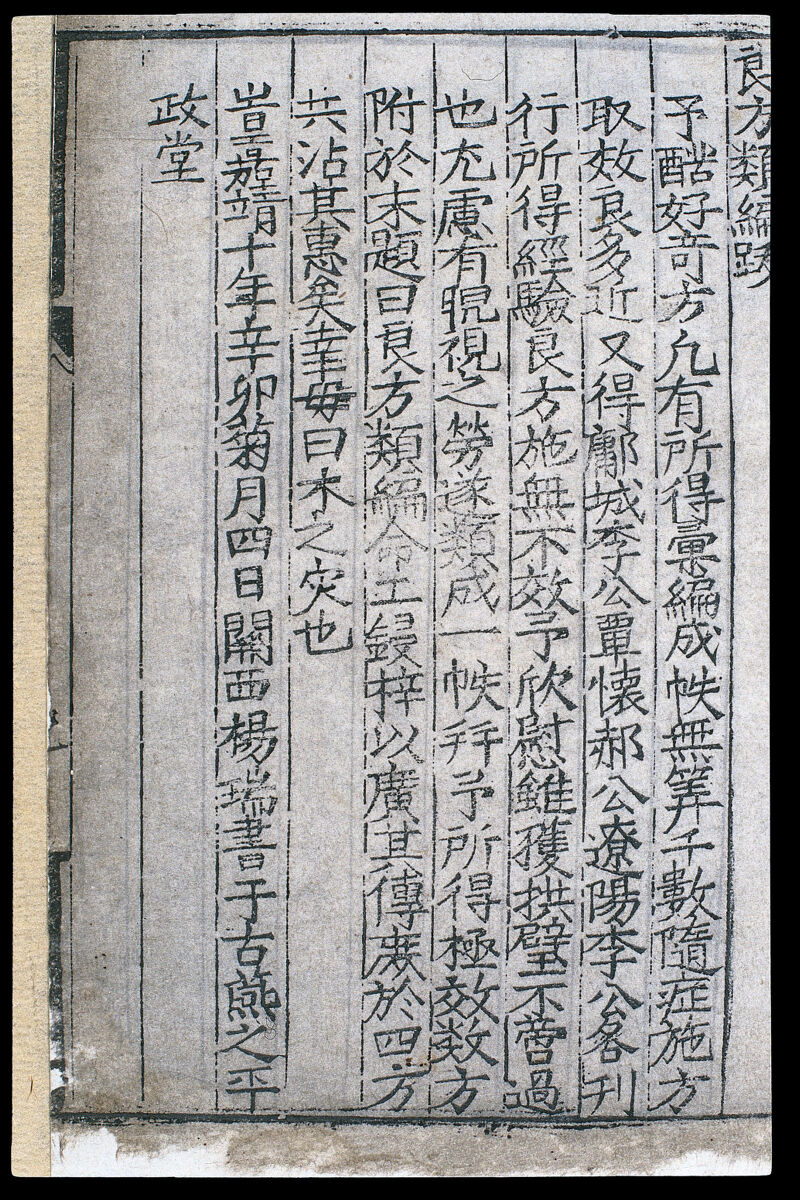 良方類編跋
予酷好竒方凢有所得彙編成帙無筭千數隨症施方
取效良多近又得鄘城李公覃懷郝公遼陽李公畧刋
行所得經驗良方施無不效予欣慰雖獲拱璧不啻過
也尤慮有睨視之勞遂類成一帙拜予所得極效数方
附於末題曰良方類編命工鋟梓以廣其傳庻於四方
共沾其惠矣幸毋曰木之灾也
旹皇嘉靖十年辛卯菊月四日關西楊瑞書于古燕之平
政堂